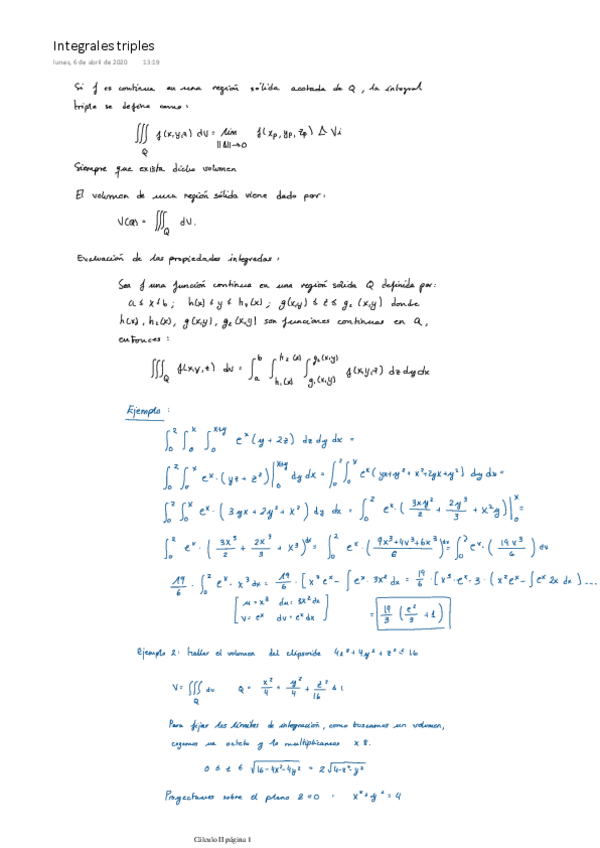 Integrales triples
lunes, 6 de abril de 2020 13:19
Si f es continua en una región sólida acotada de Q, la integral
triple se define como:
∭_Q f(x,y,z) dV = lim_{||Δ||→0} f(xp, yp, zp) Δ Vi
Siempre que exista dicho volumen
El volumen de una región sólida viene dado por:
V(Q) = ∭_Q dV.
Evaluación de las propiedades integradas:
Sea f una función continua en una región sólida Q definida por:
a ≤ x ≤ b ; h(x) ≤ y ≤ h₂(x) ; g(x,y) ≤ z ≤ g₂(x,y) donde
h(x), h₂(x), g(x,y), g₂(x,y) son funciones continuas en Q,
entonces:
∭_Q f(x,y,z) dv = ∫_a^b ∫_{h₁(x)}^{h₂(x)} ∫_{g₁(x,y)}^{g₂(x,y)} f(x,y,z) dz dy dx
Ejemplo:
∫_0^2 ∫_0^x ∫_0^{x+y} e^x (y + 2z) dz dy dx =
∫_0^2 ∫_0^x e^x · (yz + z²)|_0^{x+y} dy dx = ∫_0^2 ∫_0^x e^x (yx + y² + x² + 2yx + y²) dy dx =
∫_0^2 ∫_0^x e^x · (3yx + 2y² + x²) dy dx = ∫_0^2 e^x · (3xy²/2 + 2y³/3 + x²y)|_0^x =
∫_0^2 e^x · (3x³/2 + 2x³/3 + x³) dx = ∫_0^2 e^x · (9x³+4x³+6x³/6) dx = ∫_0^2 e^x · (19x³/6) dx
19/6 · ∫_0^2 e^x · x³ dx = 19/6 · [x³e^x - ∫e^x · 3x² dx = 19/6 · [x³·e^x - 3 · (x²e^x - ∫e^x 2x dx) ...
[u = x³ du = 3x² dx
v = e^x dv = e^x dx] = 19/3 (e²/3 + 1)
Ejemplo 2: Hallar el volumen del elipsoide 4x² + 4y² + z² ≤ 16
V = ∭_Q dv Q = x²/4 + y²/4 + z²/16 ≤ 1
Para fijar los límites de integración, como buscamos un volumen,
cogemos un octeto y lo multiplicamos x 8.
0 ≤ z ≤ √(16-4x²-4y²) = 2√(4-x²-y²)
Proyectamos sobre el plano z=0 · x² + y² = 4
Cálculo II página 1